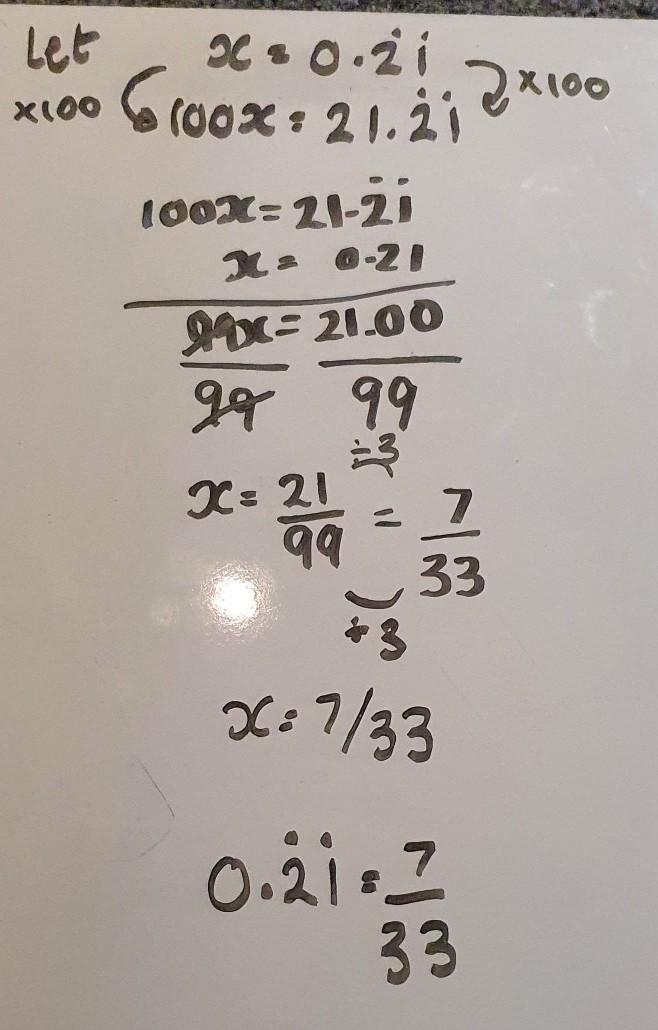 Let x = 0.2̇1̇
×100 100x = 21.2̇1̇ ×100
100x = 21.2̇1̇
x = 0.21
99x = 21.00
99 99
÷3
x = 21/99 = 7/33
÷3
x = 7/33
0.2̇1̇ = 7/33